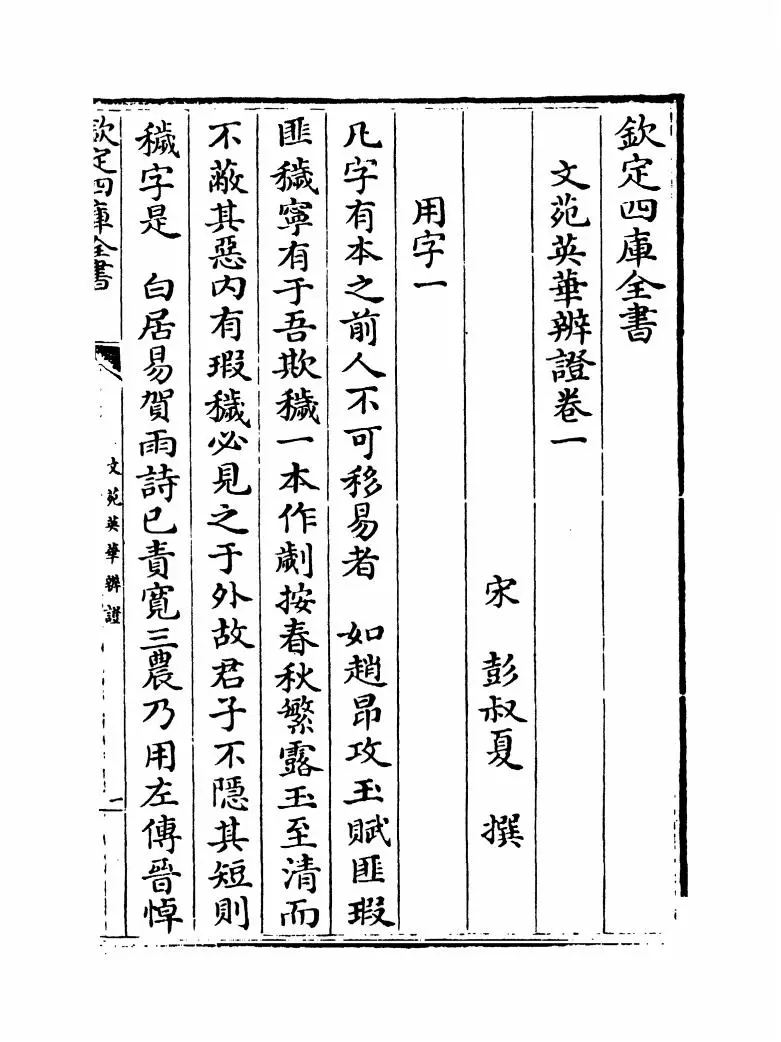 欽定四庫全書
文苑英華辨證卷一
宋 彭叔夏 撰
用字一
凡字有本之前人不可移易者 如趙昂攻玉賦匪瑕
匪穢寧有于吾欺穢一本作劌按春秋繁露玉至清而
不蔽其惡内有瑕穢必見之于外故君子不隱其短則
穢字是 白居易賀雨詩已責寛三農乃用左傳晉悼
欽定四庫全書
文苑英華辨證
一